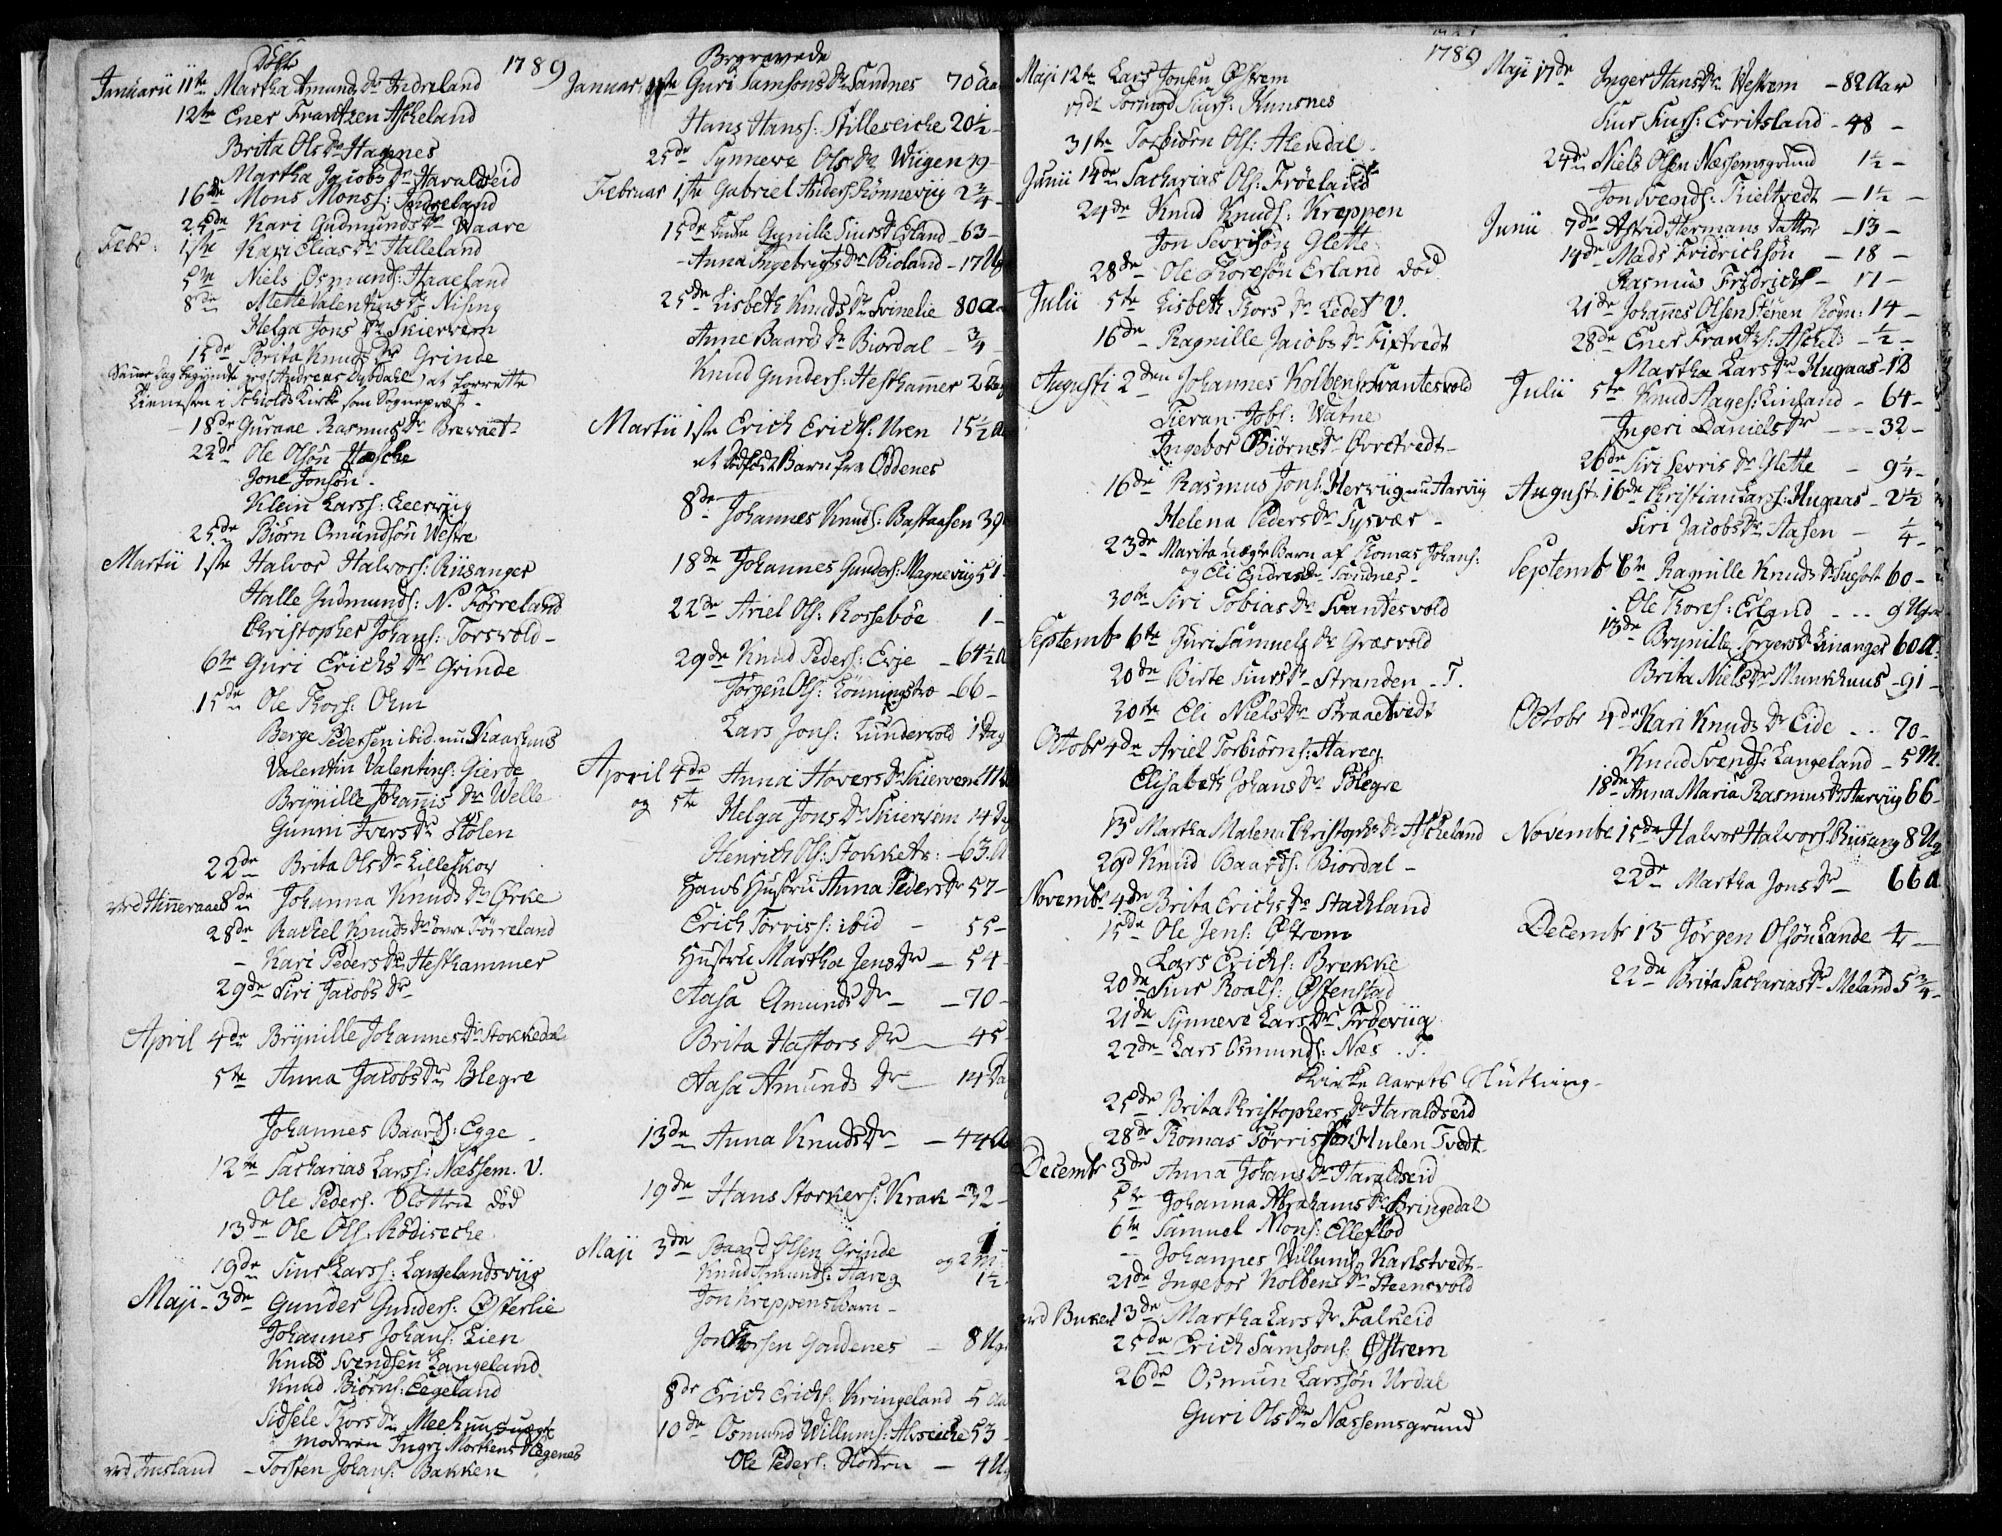 Døbte
1789
Januarii 11te Martha Amunds Dr Indreland
12te Ener Frantzen Askeland
Brita Ols Dr Hagenes
Martha Jacobs Dr Haraldseid
16de Mons Monss: Indreland
25de Kari Gudmunds Dr Waare
Febr: 1ste Kari Elias Dr Halleland
5te Niels Osmunds: Haaeland
8de Mette Valentins Dr
Helga Jons Dr Skiervem
15de Brita Knuds Dr Grinde
Samme Dag begyndte Andreas Dybdahl at forrette
Tienesten i Schiolds Kirke som Sognepræst
18de Gurane Rasmus Dr
22de Ole Olsøn
Jone Jonsøn
Klein Larss:
25de Biørn Omundsøn Westre
Martii 1ste Halvor Halvors: Riisanger
Halle Gudmunds: N. Førreland
Christopher Johans: Torsvold
6te Guri Erichs Dr Grinde
15de Ole Thors: Ohm
Berge Pedersen ibid
Valentin Valentins: Gierde
Brynille Johannis Dr Welle
Gunni Ivers Dr Stølen
22de Brita Ols Dr Lilleskov
ved Hinneraae 8de Johanna Knuds Dr Ørke
28de Rakel Knuds Dr øvre Førreland
Kari Peders Dr Hesthammer
29de Siri Jacobs Dr
April 4de Brynille Johannes Dr Stokkedal
5te Anna Jacobs Dr Blegre
Johannes Baards: Egge
12te Sacharias Larss: Næssem. V.
Ole Peders. Slotten død
13de Ole Ols. Rødiseche
19de Siur Larss: Langelandsviig
Maji 3de Gunder Gunders: Østerlie
Johannes Johans: Lien
Knud Svendsen Langeland
Knud Biørns: Eegeland
Sidsele Thors Dr
moderen Ingri Mortens
ved Imsland Torsten Johans: Bakken
Begravede
Januar 11te Guri Samsons Dr Sandnes 70 Aar
Hans Hanss: Stilleseiche 20½
25de Synneve Ols Dr Wiigen 19
Februar 1ste Gabriel Anders: Rønneviig 2¾
15de Gunille Siurs Dr Erland 63
Anna Ingebrigts Dr Bioland 17 Ug
25de Lisbeth Knuds Dr Svinelie 80 A
Anne Baards Dr Biordal ¾
Knud Gunders: Hesthammer
Martii 1ste Erich Erichs: Uren 15½
et dødfødt Barn fra Oddenes
8de Johannes Knuds: Bastaasen 39
18de Johannes Gunders: Magneviig 51
22de Ariel Ols: Rossebøe 1
29de Knud Peders: Erje 64½
Jørgen Ols: 66
Lars Jons: Lundervold 1 Dag
April 4de Anna Hovers Dr Skiervem
og 5te Helga Jons Dr Skiervem 14 Da
Henrich Ols: Stokke 63 A
Hans Hustru Anna Peders Dr 57
Erich Torriss: ibid 55
Hustru Martha Jens Dr 54
Aasa Omunds Dr 70
Brita Hastors Dr 45
Aasa Amunds Dr 14 Da
13de Anna Knuds Dr 44 Aa
19de Hans Storkers: Krak 32
Maji 3de Baard Olsen Grinde 1 og 2 M
Knud Amunds: Hareg 1½
Jon Kreppens barn
Jon Thorsen Goudenes 8 Ug
8de Erich Erichs. Kringeland 5 Aa
10de Osmund Willums: Alvseiche 53
Ole Peders: Slotten 4 Ug
1789
Maji 12te Lars Jonsen Østrem
17de Siurs: Kunsnes
31te Torbiørn Ols: Alendal
Junii 14de Sacharias Ols: Frøeland
24de Knud Knuds: Kreppen
Jon Sevrisøn Glette
28de Ole Thoresøn Erland død
Julii 5te Lisbeth Thors Dr Ledet V.
16de Ragnille Jacobs Dr Tixtvedt
Augusti 2den Johannes Kolbens Svantesvold
Tieran Jobs: Watne
Ingebor Biørns Dr Qvretvedt
16de Rasmus Jons: Herviig nu Aarviig
Helena Peders Dr Tysvær
23de Marita uægte Barn af Thomas Johans:
og Eli Endres Dr Sandnes
30te Siri Tobias Dr Svandesvold
Septemb 6te Guri Samuels Dr Græsvold
20de Birte Siurs Dr Stranden T.
30te Eli Niels Dr Straaetvedt
Octobr 4de Ariel Torbiørns: Hareg
Elisabeth Johans Dr Blegre
13d Martha Malena Christophs Dr Askeland
29d Knud Baards: Biordal
Novemb 4de Brita Erichs Dr Stachland
15de Ole Jens: Østrem
Lars Erichs: Brekke
20de Siur Roals: Østenstad
21de Synneve Lars Dr Frøeviig
22de Lars Osmunds: Næs. T.
Kirke Aarets Slutning
25de Brita Christophers Dr Haraldseid
28de Thomas Tørrissøn Hulen Tvedt
Decembr 3de Anna Johans Dr Haraldseid
5te Johanna Abrahams Dr Bringedal
6te Samuel Mons: Elleflod
Johannes Willums: Karlstvedt
21de Ingebor Kolbens Dr Steensvold
ved Buken 13de Martha Lars Dr Falkeid
25de Erich Samsons: Østrem
26de Osmun Larssøn Urdal
Guri Ols Dr Næssemsgrund
Maji 17de Inger Hans Dr Westrem 82 Aar
Siur Siurs: Erritsland 48
24de Niels Olsen Næssemsgrund 1½
Jon Svends: Kieltvedt 1½
Junii 7de Astrid Hermans Datter 13
14de Mads Fridrichsøn 18
Rasmus Fridrichs 11
21de Johannes Olsen Stenen 14
28de Ener Frantzs: Askel: ½
Martha Lars Dr Hugaas 13
Julii 5te Knud Aages: Linland 64
Ingeri Daniels Dr 32
26de Siri Sevris Dr Glette 9¼
August: 16de Christian Larss: Hugaas 2½
Siri Jacobs Dr Aasen ¼
Septemb 6te Ragnille Knuds Dr 60
Ole Thores: Erland 9 Uger
13de Brynille Torgers Dr Linanger 60 A.
Brita Niels Dr Munkhuus 91
Octobr 4de Kari Knuds Dr Eide 70
Knud Svends: Langeland 5 M
18de Anna Maria Rasmus Dr Aarviig 66
Novembr 15de Halvor Halvors: Riisang 8 Ug
22de Martha Jons Dr 66 A
Decembr 13 Jörgen Olsøn Lande 4
22de Brita Sacharias Dr Meland 5¾